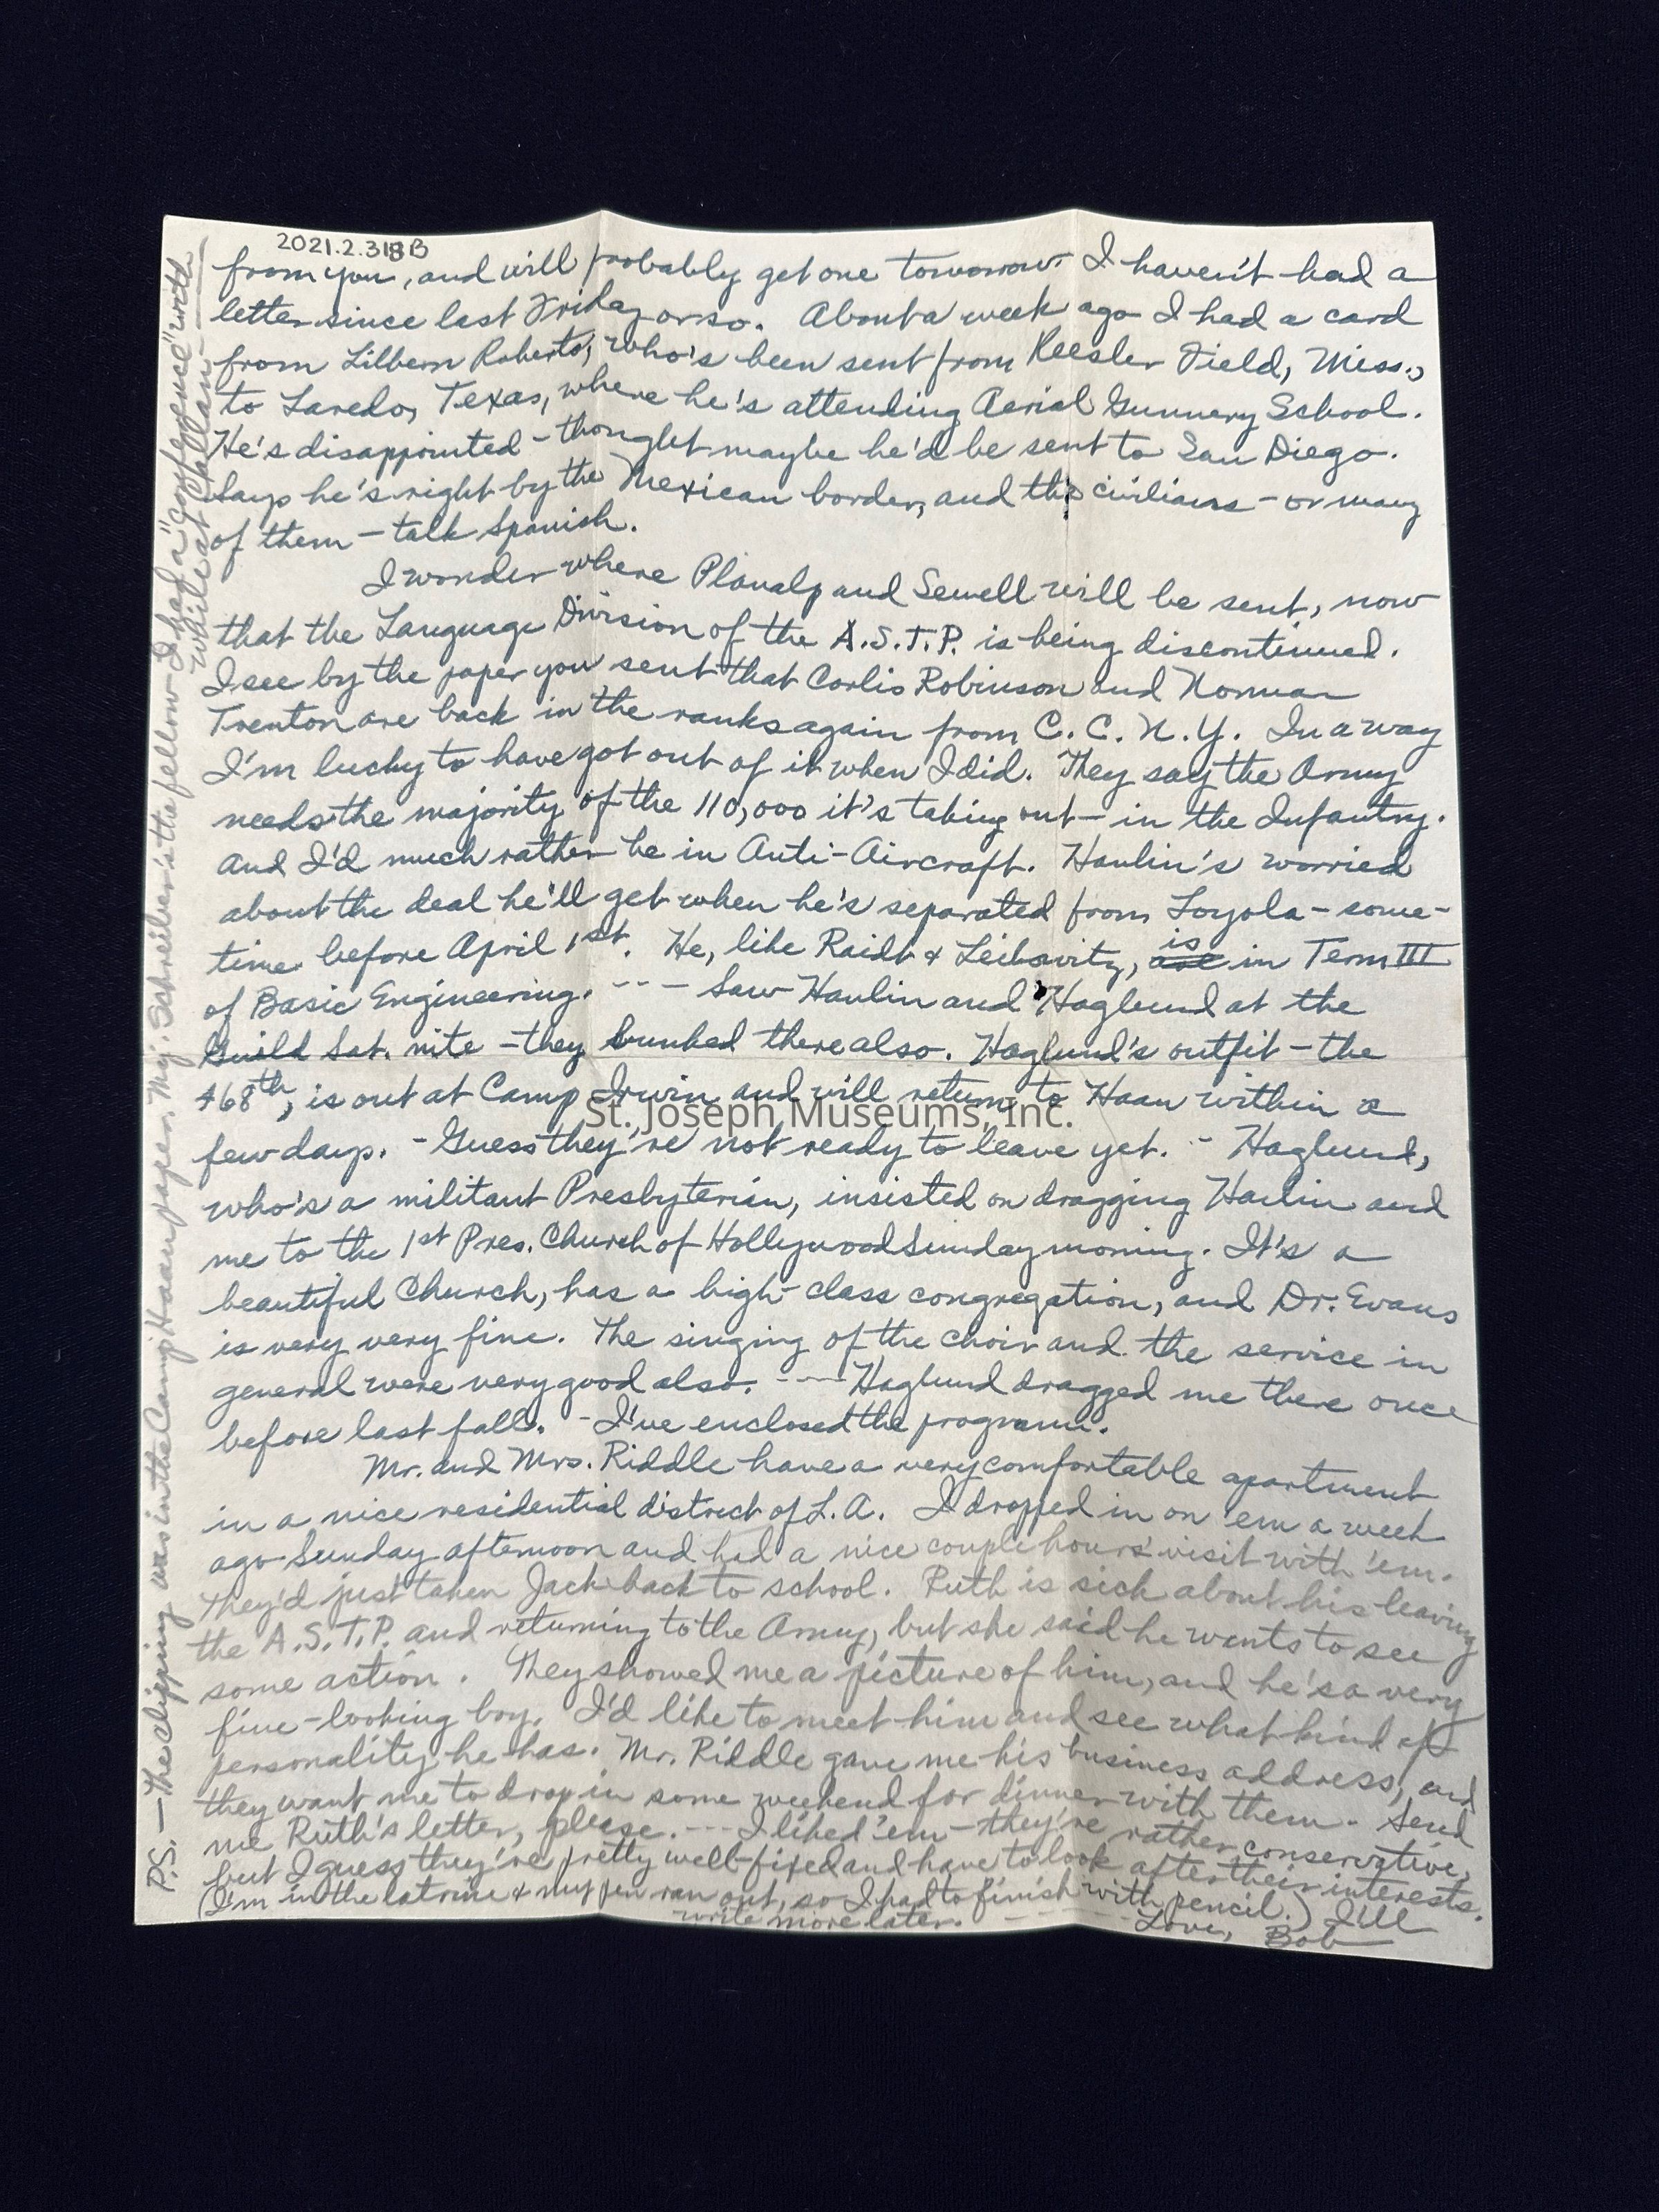 2021.2.318B
from you, and will probably get one tomorrow. I haven't had a
letter since last Friday or so. About a week ago I had a card
from Lilbern Roberts, who's been sent from Keesler Field, Miss.,
to Laredo, Texas, where he's attending Aerial Gunnery School.
He's disappointed - thought maybe he'd be sent to San Diego.
Says he's right by the Mexican border, and the civilians - or many
of them - talk Spanish.
I wonder where Plavalp and Sewell will be sent, now
that the Language Division of the A.S.T.P. is being discontinued.
I see by the paper you sent that Corlis Robinson and Norman
Trenton are back in the ranks again from C.C.N.Y. In a way
I'm lucky to have got out of it when I did. They say the Army
needs the majority of the 110,000 it's taking out - in the Infantry.
And I'd much rather be in Anti-Aircraft. Hanlin's worried
about the deal he'll get when he's separated from Loyola - some-
time before April 1st. He, like Raidt & Leibovitz, are is in Term III
of Basic Engineering. --- Saw Hanlin and Haglund at the
Guild Sat. nite - they bunked there also. Haglund's outfit - the
468th, is out at Camp Irwin and will return to Haan within a
St. Joseph Museums, Inc.
few days. - Guess they're not ready to leave yet. - Haglund,
who's a militant Presbyterian, insisted on dragging Hanlin and
me to the 1st Pres. Church of Hollywood Sunday morning. It's a
beautiful Church, has a high-class congregation, and Dr. Evans
is very very fine. The singing of the choir and the service in
general were very good also. --- Haglund dragged me there once
before last fall. - I've enclosed the program.
Mr. and Mrs. Riddle have a very comfortable apartment
in a nice residential district of L.A. I dropped in on 'em a week
ago Sunday afternoon and had a nice couple hours' visit with 'em.
They'd just taken Jack back to school. Ruth is sick about his leaving
the A.S.T.P. and returning to the Army, but she said he wants to see
some action. They showed me a picture of him, and he's a very
fine-looking boy. I'd like to meet him and see what kind of
personality he has. Mr. Riddle gave me his business address, and
they want me to drop in some weekend for dinner with them. Send
me Ruth's letter, please. --- I liked 'em - they're rather conservative,
but I guess they're pretty well-fixed and have to look after their interests.
(I'm in the latrine & my pen ran out, so I had to finish with pencil.) I'll
write more later. ------ Love, Bob
P.S. - The clipping was in the Camp Haan paper. Mj. Schreiber's the fellow I had a "conference" with
while at Callan.